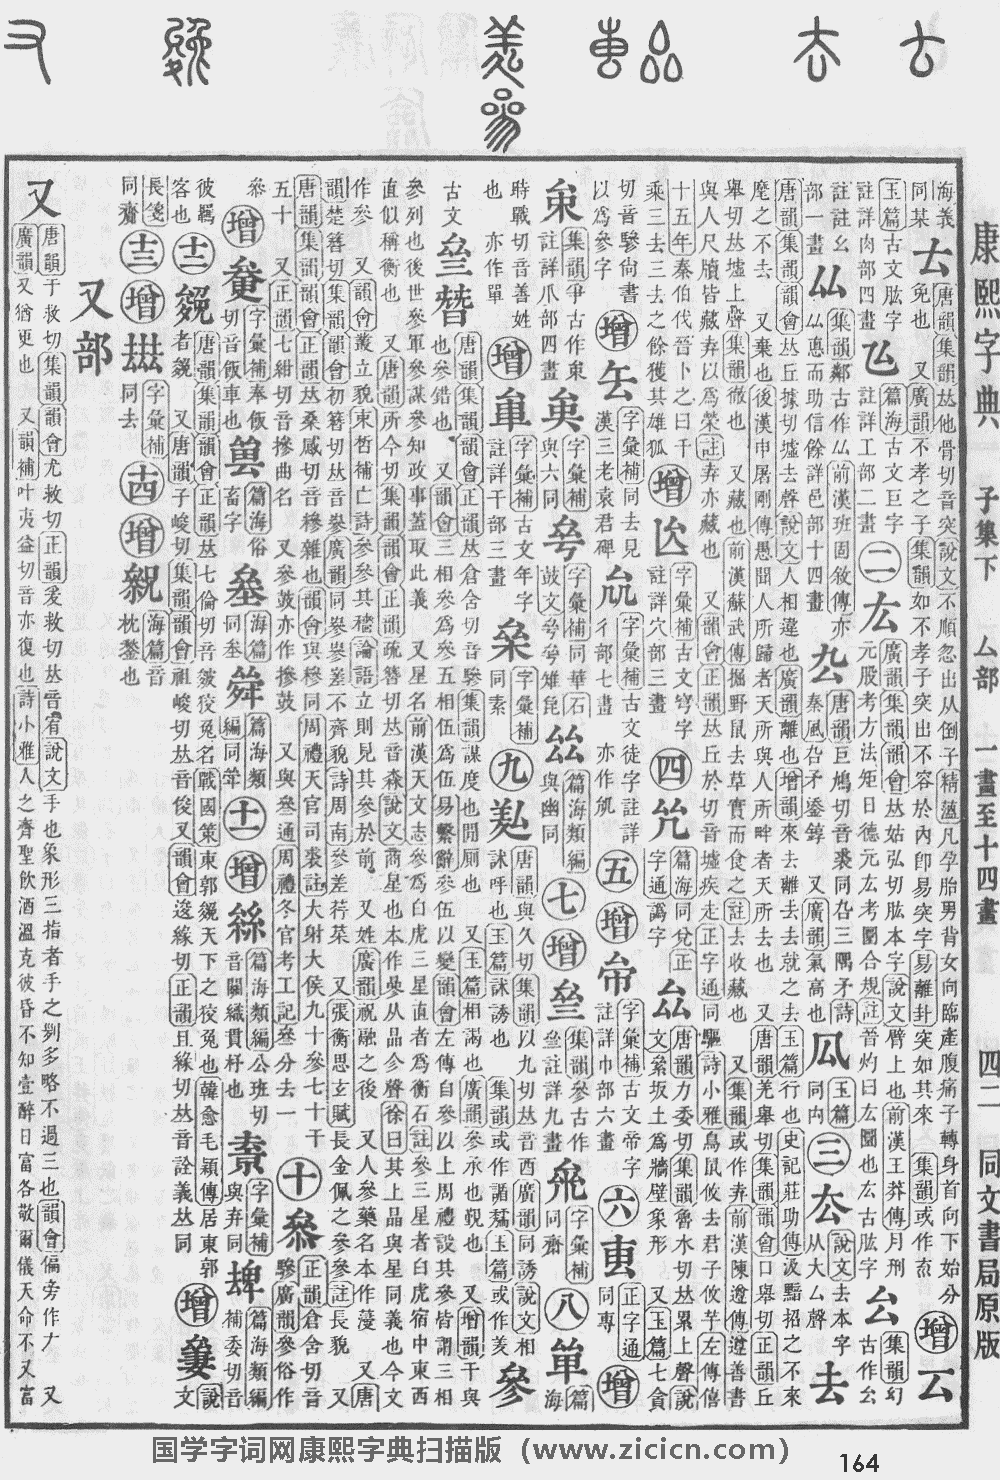 康熙字典 子集下 厶部 一畫至十四畫 四二 同文書局原版
海義同某 𠫓 唐韻集韻𠀤他骨切音突說文不順忽出从倒子精薀凡孕胎男背女向臨產腹痛子轉身首向下始分免也 又廣韻不孝之子集韻如不孝子突出不容於內卽易突字易離卦突如其來 集韻或作𡿮 增 云
玉篇古文肱字註詳肉部四畫 篇海古文巨字註詳工部二畫 二 厷 廣韻集韻韻會𠀤姑弘切肱本字說文臂上也前漢王莽傳月刑元股考方法矩日德元厷考圜合規註晉灼曰厷圜也厷古肱字 厸 集韻幻古作厸
註註幺部一畫 厸 集韻鄰古作厸前漢班固敘傳亦厸惪而助信餘詳邑部十四畫 厹 唐韻巨鳩切音裘同叴三隅矛詩秦風叴矛鋈錞 又廣韻氣高也 㕕 玉篇同内 三 厺 說文去本字从大厶聲 去
唐韻集韻韻會𠀤丘據切墟去聲說文人相違也廣韻離也增韻來去離去去就之去玉篇行也史記莊助傳汲黯招之不來麾之不去 又棄也後漢申屠剛傳愚聞人所歸者天所與人所畔者天所去也 又唐韻羌舉切集韻韻會口舉切正韻丘
舉切𠀤墟上聲集韻徹也 又藏也前漢蘇武傳掘野鼠去草實而食之註去收藏也 又集韻或作弆前漢陳遵傳遵善書與人尺牘皆藏弆以爲榮註弆亦藏也 又韻會正韻𠀤丘於切音墟疾走正字通同驅詩小雅鳥鼠攸去君子攸芋左傳僖
十五年秦伯伐晉卜之曰千乘三去三去之餘獲其雄狐 增 字彙補古文穹字註詳穴部三畫 四 篇海同兌正字通譌字 厽 唐韻力委切集韻魯水切𠀤累上聲說文絫坂土爲牆壁象形 又玉篇七貪
切音驂尙書以爲參字 增 字彙補同去見漢三老袁君碑 字彙補古文徒字註詳彳部七畫 亦作 五 增 字彙補古文帝字註詳巾部六畫 六 叀 正字通同專 增
集韻爭古作 註詳爪部四畫 字彙補與六同 字彙補同華石鼓文 篇海類編與幽同 七 增 集韻參古作 註詳九畫 字彙補同齋 八 篇海
時戰切音善姓也 亦作單 增 字彙補古文年字註詳干部三畫 字彙補同索 九 唐韻與久切集韻以九切𠀤音酉廣韻同誘說文相訹呼也玉篇訹誘也 集韻或作䛻 玉篇或作羑 參
古文 曑 唐韻集韻韻會正韻𠀤倉含切音驂集韻謀度也閒厠也 又玉篇相謁也廣韻參承也覲也 又增韻干與也參錯也 又韻會三相參爲參五相伍爲伍易繫辭參伍以變韻會左傳自參以上周禮設其參皆謂三相
參列也後世參軍參謀參知政事蓋取此義 又星名前漢天文志參爲白虎三星直者爲衡石註參三星者白虎宿中東西直似稱衡也 又唐韻所今切集韻韻會正韻疏簪切𠀤音森說文商星也本作曑从品㐱聲徐曰其上品與星同義也今文
作參 又韻會叢立貌束晳補亡詩參參其穡論語立則見其參於前 又姓廣韻祝融之後 又人參藥名本作蓡 又唐韻楚簪切集韻韻會初簪切𠀤音嵾廣韻同嵾嵾差不齊貌詩周南參差荇菜 又張衡思玄賦長金佩之參參註長貌 又
唐韻集韻韻會正韻𠀤桑感切音糝雜也韻會與糝同周禮天官司裘註大射大侯九十參七十干五十 又正韻七紺切音摻曲名 又參鼓亦作摻鼓 又與叄通周禮冬官考工記叄分去一 十 叅 正韻倉含切音驂廣韻參俗作
參 增 字彙補奉飯切音飯車也 篇海俗畜字 海篇同叁 篇海類編同 十一 增 篇海類編公班切音關織貫杼也 字彙補與弃同 篇海類編補委切音
彼羈客也 十二 㕙 唐韻集韻韻會正韻𠀤七倫切音皴狡兔名戰國策東郭㕙天下之狡兔也韓愈毛穎傳居東郭者㕙 又唐韻子峻切集韻韻會祖峻切𠀤音俊又韻會逡緣切正韻且緣切𠀤音詮義𠀤同 增 說文
長箋同齎 十三 增 字彙補同去 十四 增 海篇音枕鏊也
又部
又 唐韻于救切集韻韻會尤救切正韻爰救切𠀤音宥說文手也象形三指者手之𠛱多略不過三也韻會偏旁作ナ 又廣韻又猶更也 又韻補叶夷益切音亦復也詩小雅人之齊聖飮酒溫克彼昏不知壹醉日富各敬爾儀天命不又富
国学字词网康熙字典扫描版（www.zicicn.com）
164